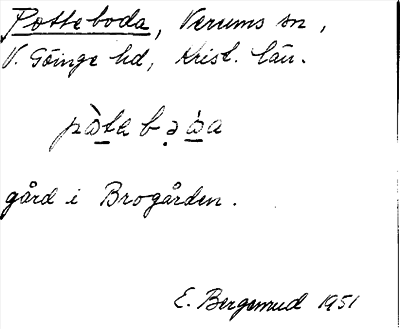 Potteboda, Verums sn,
V. Göinge hd, Krist. län.
pòtebə̣ òa
gård i Brogården.
E. Bergmud 1951